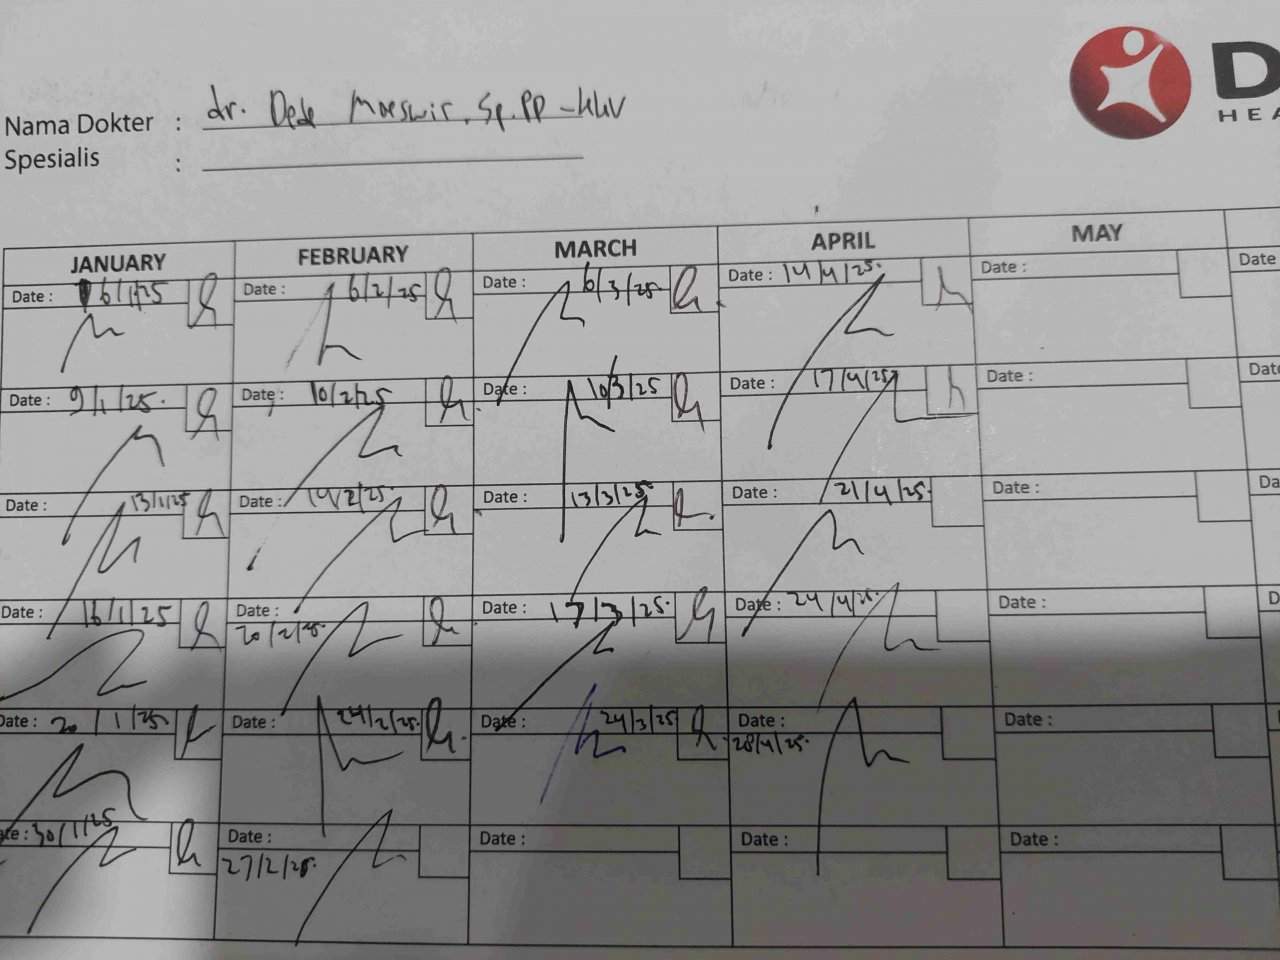 Nama Dokter : dr. Dede Moeswir, Sp.PD-KKV
Spesialis :
D
HEA
JANUARY FEBRUARY MARCH APRIL MAY
Date : 6/1/25 Date : 6/2/25 Date : 6/3/25 Date : 14/4/25 Date : Date
Date : 9/1/25 Date : 10/2/25 Date : 10/3/25 Date : 17/4/25 Date : Dat
Date : 13/1/25 Date : 14/2/25 Date : 13/3/25 Date : 21/4/25 Date : Da
Date : 16/1/25 Date : 20/2/25 Date : 17/3/25 Date : 24/4/25 Date : D
Date : 20/1/25 Date : 24/2/25 Date : 24/3/25 Date : 28/4/25 Date :
ate : 30/1/25 Date : 27/2/25 Date : Date : Date :